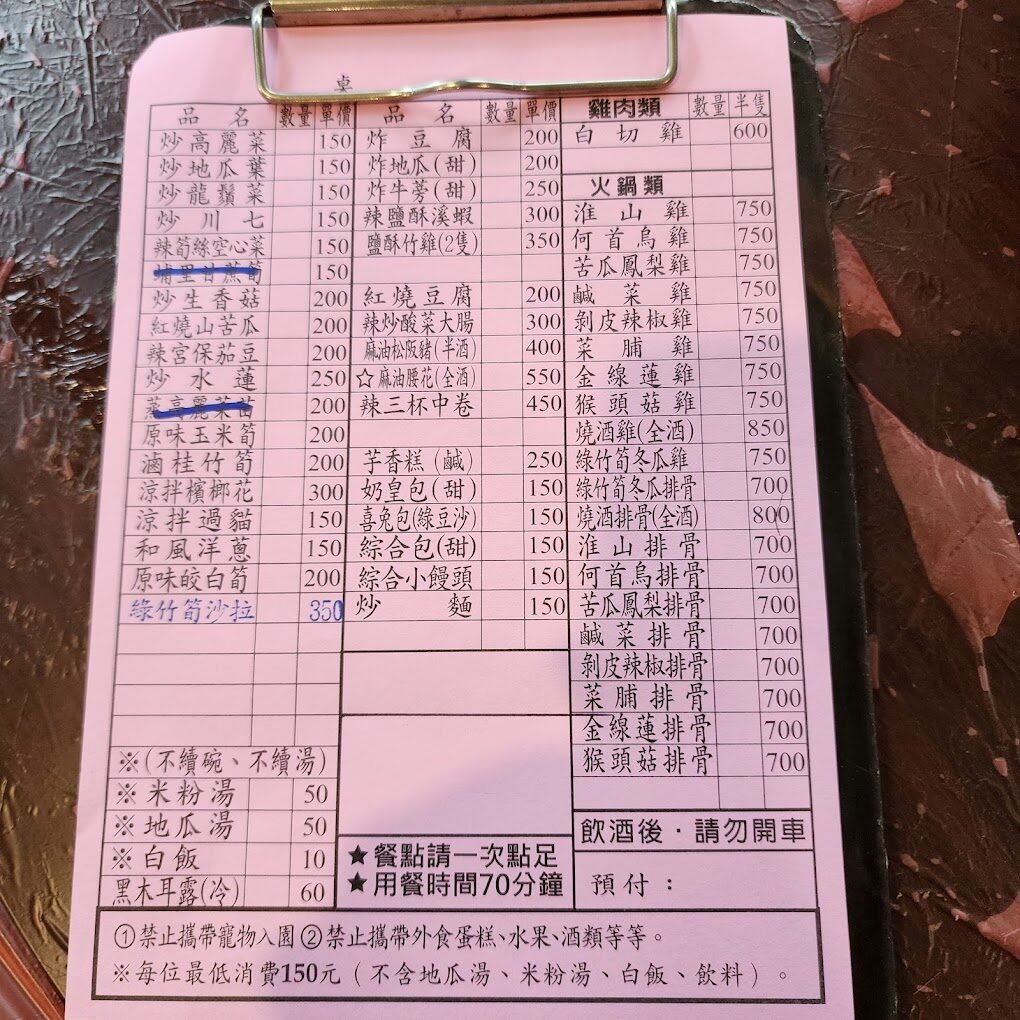 桌
品名 數量 單價
炒高麗菜 150
炒地瓜葉 150
炒龍鬚菜 150
炒川七 150
辣筍絲空心菜 150
埔里甘蔗筍 150
炒生香菇 200
紅燒山苦瓜 200
辣宮保茄豆 200
炒水蓮 250
高麗菜苗 200
原味玉米筍 200
滷桂竹筍 200
涼拌檳榔花 300
涼拌過貓 150
和風洋蔥 150
原味皎白筍 200
綠竹筍沙拉 350
※(不續碗、不續湯)
※米粉湯 50
※地瓜湯 50
※白飯 10
黑木耳露(冷) 60
品名 數量 單價
炸豆腐 200
炸地瓜(甜) 200
炸牛蒡(甜) 250
辣鹽酥溪蝦 300
鹽酥竹雞(2隻) 350
紅燒豆腐 200
辣炒酸菜大腸 300
麻油松阪豬(半酒) 400
☆麻油腰花(全酒) 550
辣三杯中卷 450
芋香糕(鹹) 250
奶皇包(甜) 150
喜兔包(綠豆沙) 150
綜合包(甜) 150
綜合小饅頭 150
炒麵 150
★餐點請一次點足
★用餐時間70分鐘
雞肉類 數量 半隻
白切雞 600
火鍋類
淮山雞 750
何首烏雞 750
苦瓜鳳梨雞 750
鹹菜雞 750
剝皮辣椒雞 750
菜脯雞 750
金線蓮雞 750
猴頭菇雞 750
燒酒雞(全酒) 850
綠竹筍冬瓜雞 750
綠竹筍冬瓜排骨 700
燒酒排骨(全酒) 800
淮山排骨 700
何首烏排骨 700
苦瓜鳳梨排骨 700
鹹菜排骨 700
剝皮辣椒排骨 700
菜脯排骨 700
金線蓮排骨 700
猴頭菇排骨 700
飲酒後·請勿開車
預付：
①禁止攜帶寵物入園②禁止攜帶外食蛋糕、水果、酒類等等。
※每位最低消費150元（不含地瓜湯、米粉湯、白飯、飲料）。